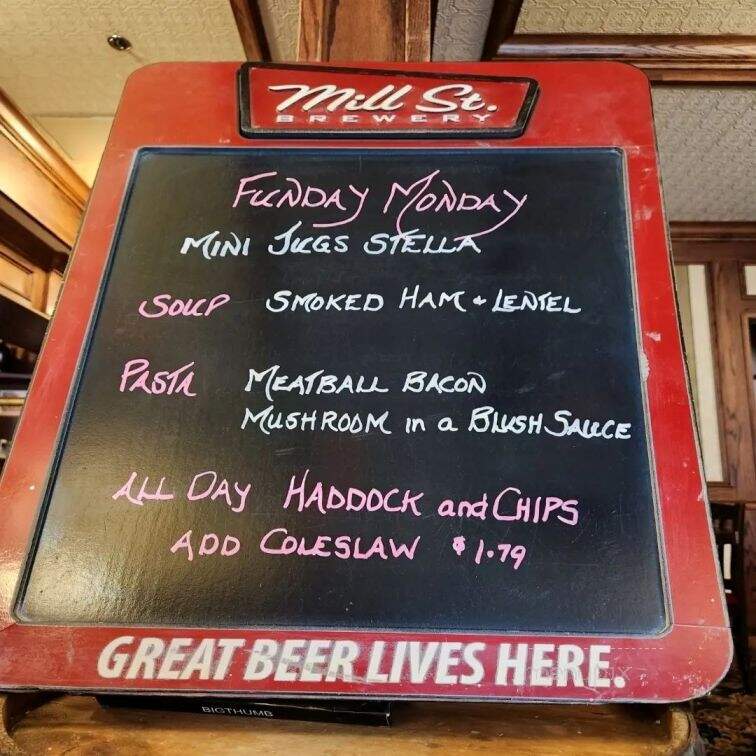 Mill St.
BREWERY
FUNDAY MONDAY
MINI JUGS STELLA
SOUP SMOKED HAM + LENTEL
PASTA MEATBALL BACON
MUSHROOM in a BLUSH SAUCE
ALL DAY HADDOCK and CHIPS
ADD COLESLAW $1.79
GREAT BEER LIVES HERE.
BIGTHUMB